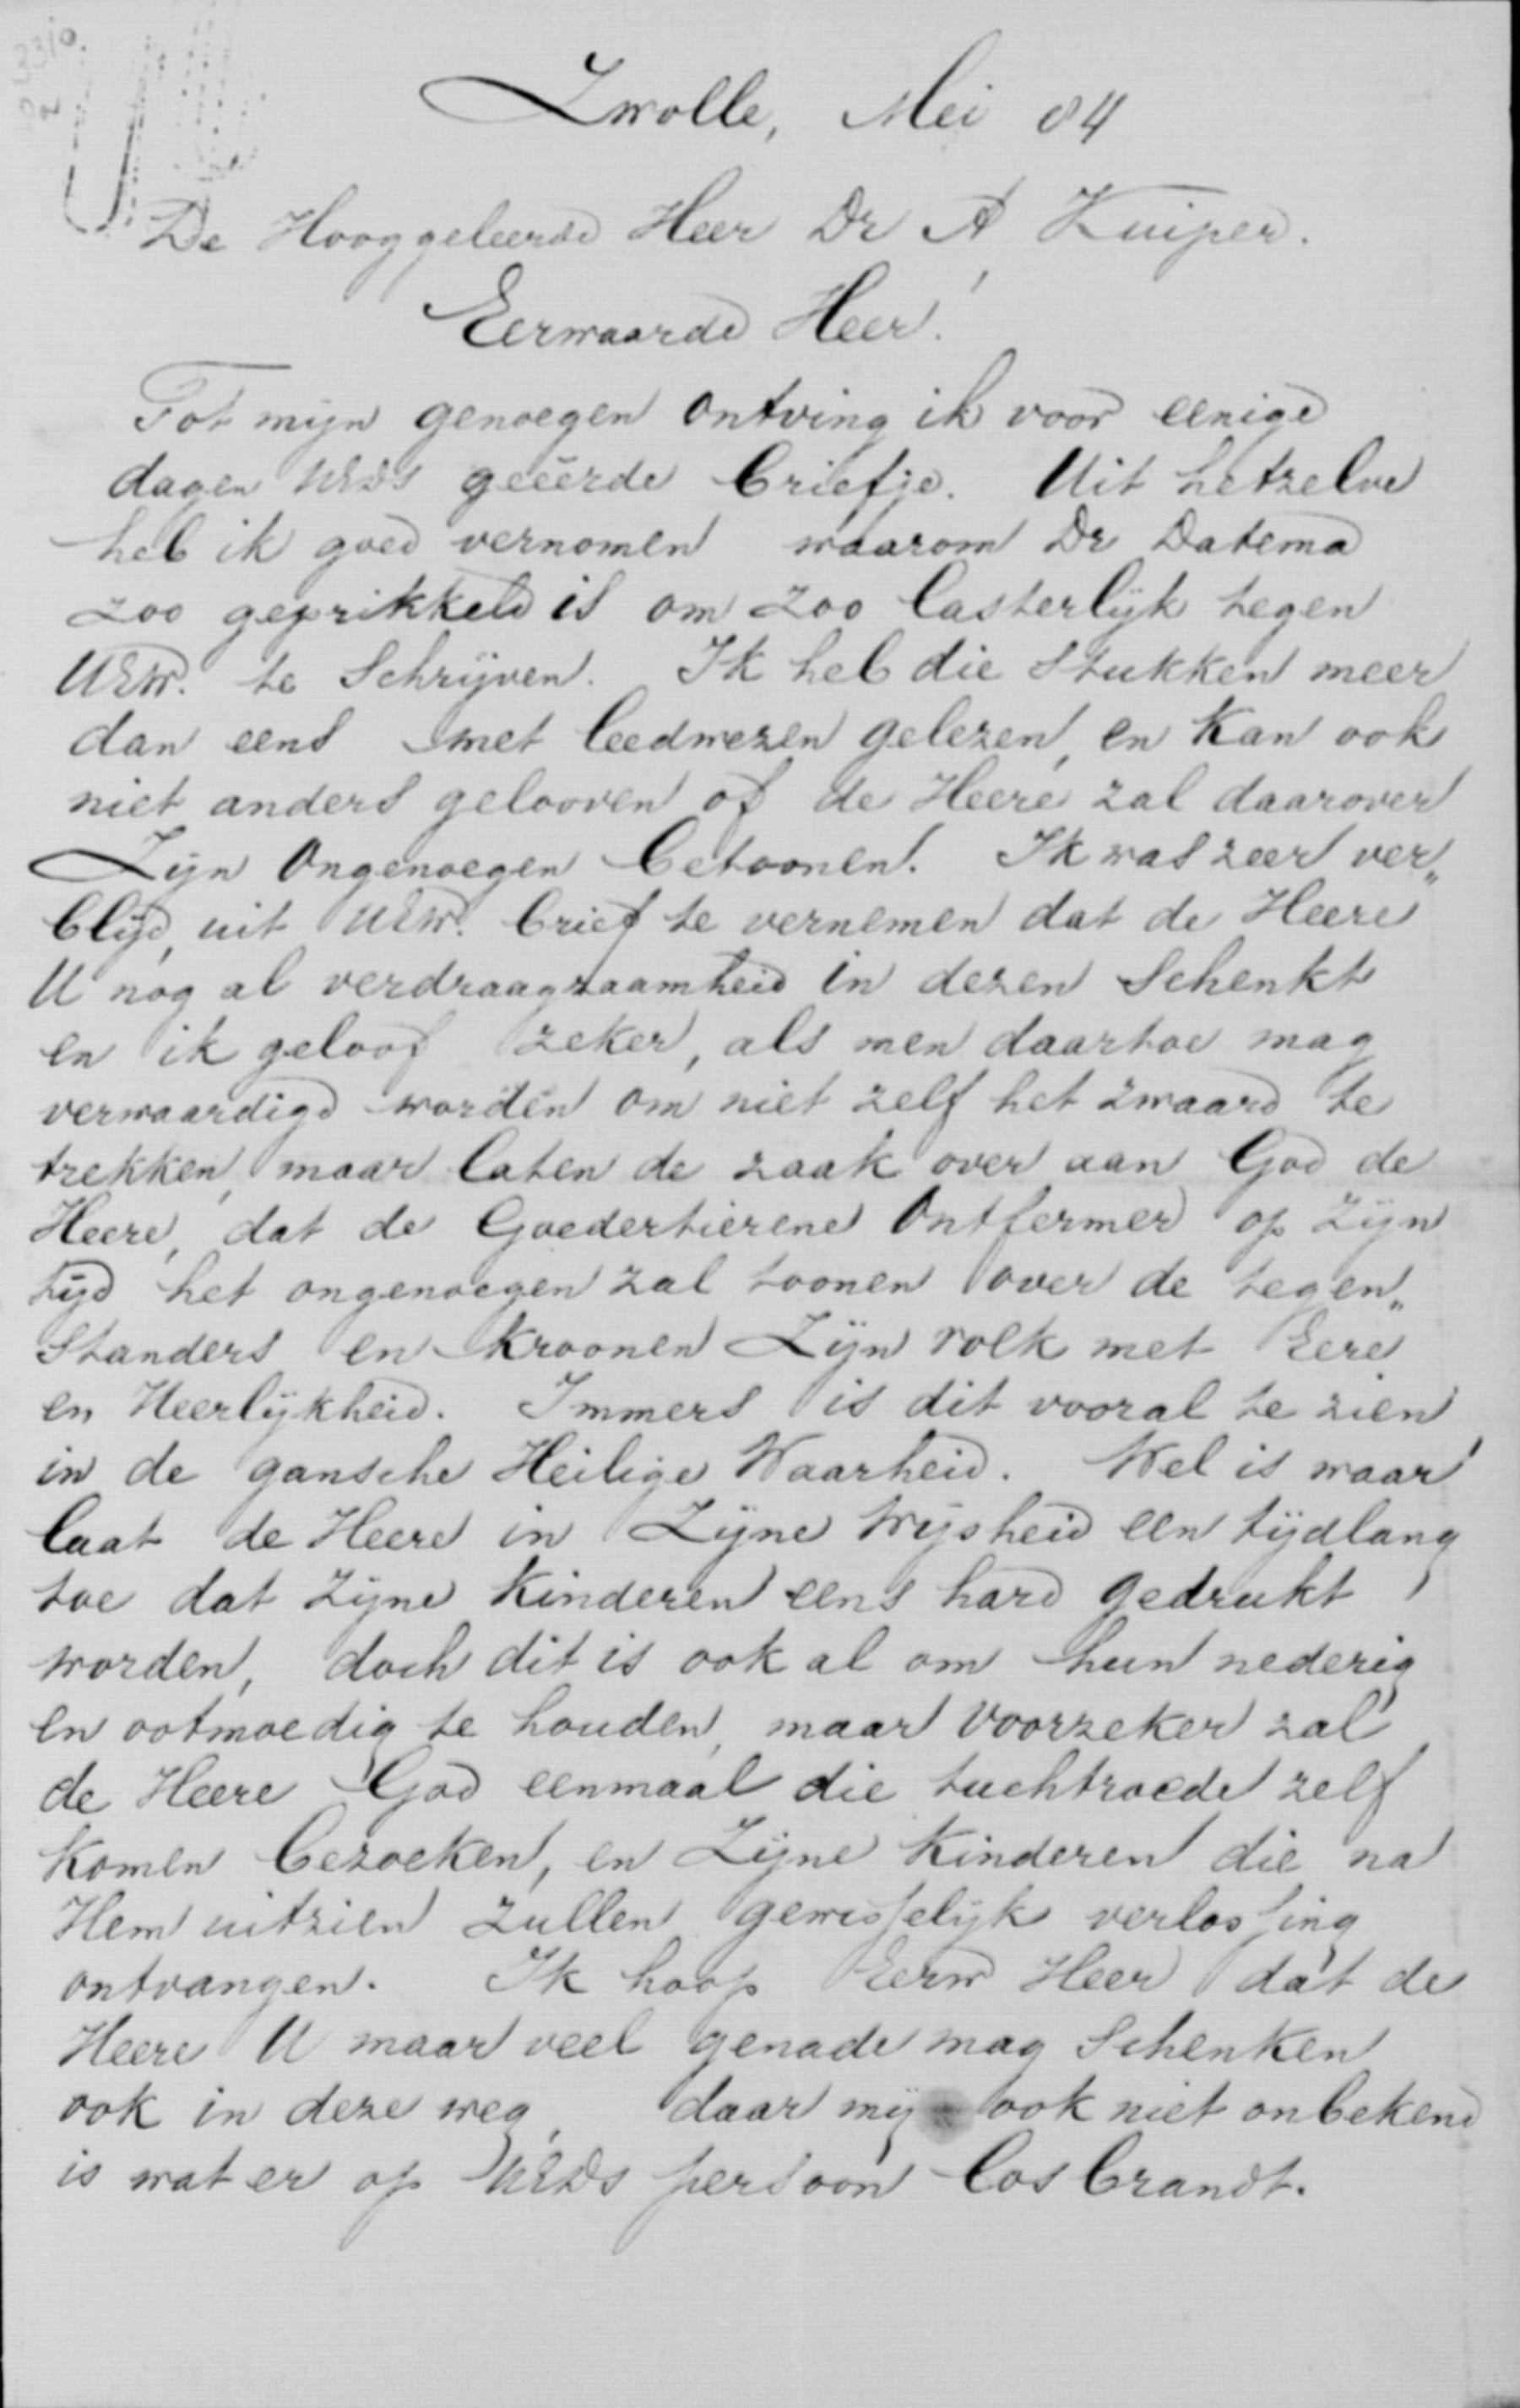 3310.
Zwolle, Mei 84
De Hooggeleerde Heer Dr A Kuiper.
Eerwaarde Heer!
Tot mijn genoegen ontving ik voor eenige
dagen UEds geëerde briefje. Uit hetzelve
heb ik goed vernomen waarom Dr Datema
zoo geprikkeld is om zoo lasterlijk tegen
UEw. te Schrijven. Ik heb die Stukken meer
dan eens met leedwezen gelezen, en kan ook
niet anders gelooven of de Heere zal daarover
Zijn Ongenoegen betoonen. Ik was zeer ver„
blijd, uit UEw. brief te vernemen dat de Heere
U nog al verdraagzaamheid in dezen Schenkt
en ik geloof zeker, als men daartoe mag
verwaardigd worden om niet zelf het zwaard te
trekken, maar laten de zaak over aan God de
Heere, dat de Goedertierene Ontfermer op Zijn
tijd het ongenoegen zal toonen over de tegen„
Standers en kroonen Zijn volk met Eere
en Heerlijkheid. Immers is dit vooral te zien
in de gansche Heilige Waarheid. Wel is waar
laat de Heere in Zijne Wijsheid een tijdlang
toe dat Zijne Kinderen eens hard gedrukt
worden, doch dit is ook al om hun nederig
en ootmoedig te houden, maar voorzeker zal
de Heere God eenmaal die tuchtroede zelf
komen bezoeken, en Zijne Kinderen die na
Hem uitzien zullen gewisselijk verlossing
ontvangen. Ik hoop Eerw Heer dat de
Heere U maar veel genade mag Schenken
ook in deze weg, daar mij ook niet onbekend
is wat er op UEds persoon los brandt.